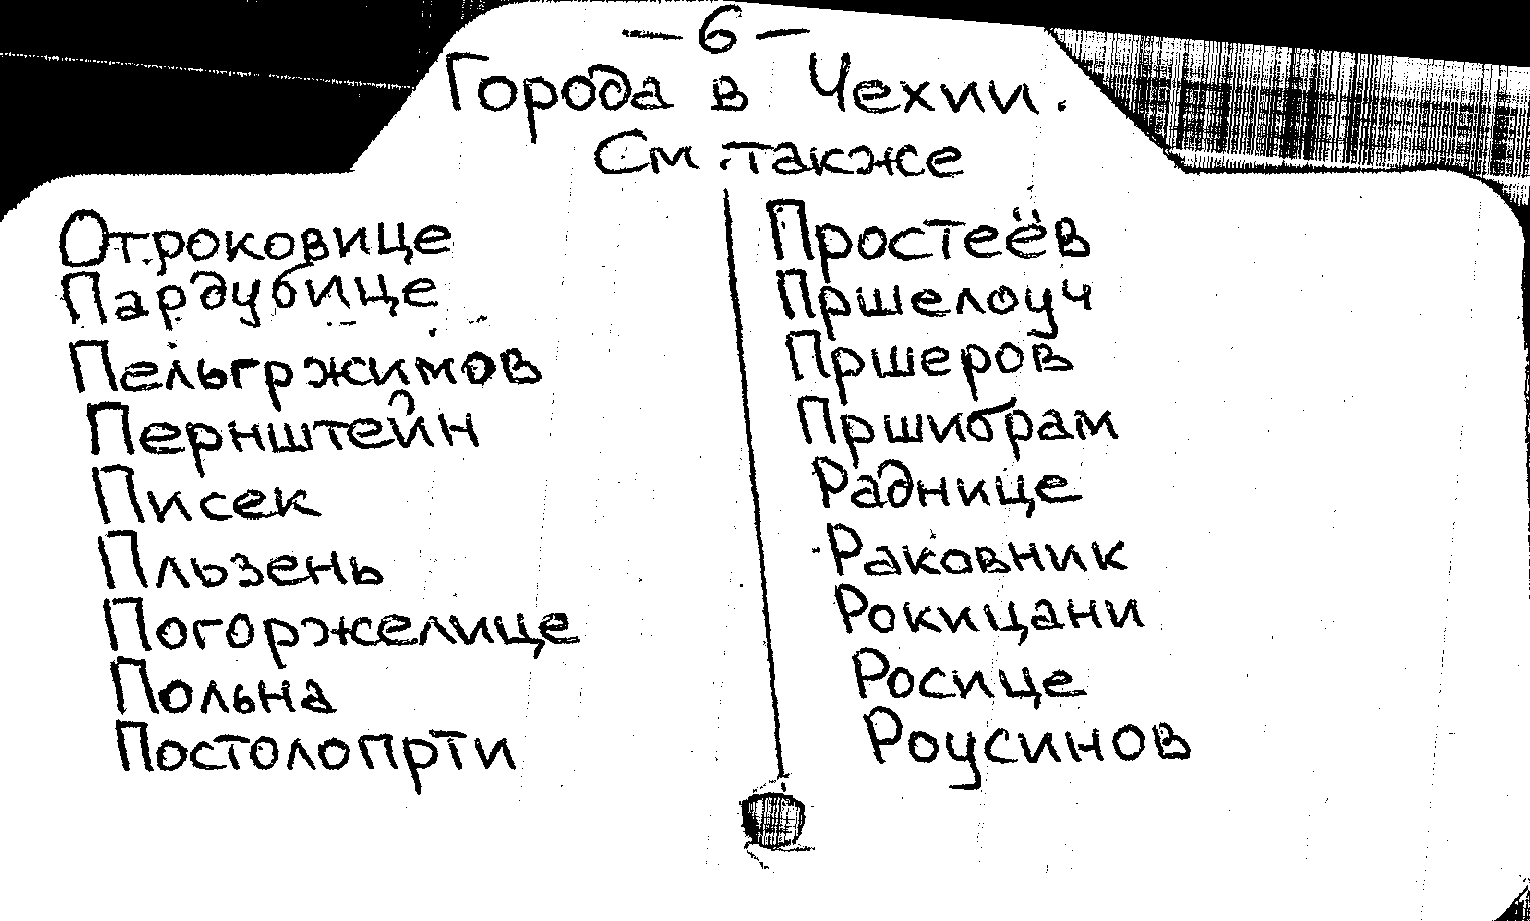 — 6 —
Города в Чехии.
См. также
Отроковице
Пардубице
Пельгржимов
Пернштейн
Писек
Пльзень
Погоржелице
Польна
Постолопрти
Простеёв
Пршелоуч
Пршеров
Пршибрам
Раднице
Раковник
Рокицани
Росице
Роусинов